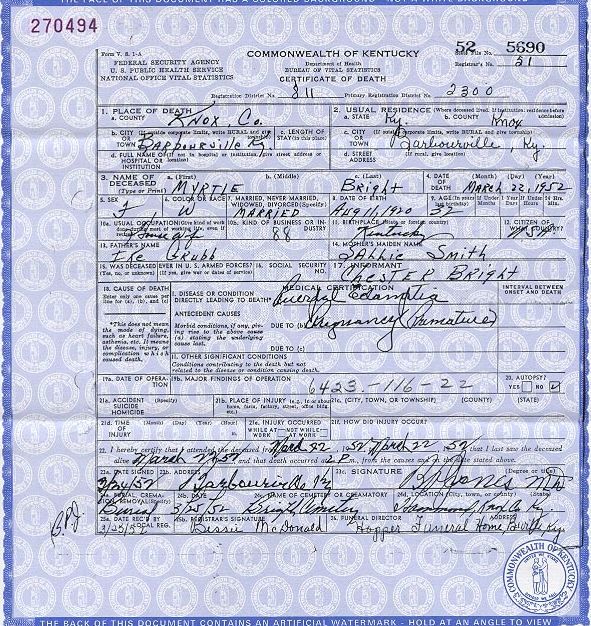 THE FACE OF THIS DOCUMENT HAS A COLORED BACKGROUND - NOT A WHITE BACKGROUND
270494
Form V. S. 1-A
FEDERAL SECURITY AGENCY
U. S. PUBLIC HEALTH SERVICE
NATIONAL OFFICE VITAL STATISTICS
COMMONWEALTH OF KENTUCKY
Department of Health
BUREAU OF VITAL STATISTICS
CERTIFICATE OF DEATH
52 File No. 5690
Registrar's No. 21
Registration District No. 811 Primary Registration District No. 2300
1. PLACE OF DEATH
a. COUNTY Knox, Co.
2. USUAL RESIDENCE (Where deceased lived. If institution: residence before admission)
a. STATE Ky. b. COUNTY Knox
b. CITY OR TOWN Barbourville Ky.
c. LENGTH OF STAY (in this place)
c. CITY OR TOWN Barbourville, Ky.
d. FULL NAME OF HOSPITAL OR INSTITUTION (If not in hospital or institution, give street address or location)
d. STREET ADDRESS (If rural, give location)
3. NAME OF DECEASED (Type or Print)
a. (First) MYRTLE b. (Middle) c. (Last) Bright
4. DATE OF DEATH (Month) (Day) (Year) MARCH 22, 1952
5. SEX F
6. COLOR OR RACE W
7. MARRIED, NEVER MARRIED, WIDOWED, DIVORCED (Specify) MARRIED
8. DATE OF BIRTH Aug 11, 1920
9. AGE (In years last birthday) 32 If Under 1 Year Months Days If Under 24 Hrs. Hours Min.
10a. USUAL OCCUPATION (Give kind of work done during most of working life, even if retired) Housewife
10b. KIND OF BUSINESS OR INDUSTRY 88
11. BIRTHPLACE (State or foreign country) Kentucky
12. CITIZEN OF WHAT COUNTRY?
13. FATHER'S NAME Ike Grubb
14. MOTHER'S MAIDEN NAME SAllie Smith
15. WAS DECEASED EVER IN U. S. ARMED FORCES? (Yes, no, or unknown) (If yes, give war or dates of service)
16. SOCIAL SECURITY NO.
17. INFORMANT CHESTER Bright
18. CAUSE OF DEATH
Enter only one cause per line for (a), (b), and (c)
MEDICAL CERTIFICATION
INTERVAL BETWEEN ONSET AND DEATH
I. DISEASE OR CONDITION DIRECTLY LEADING TO DEATH* Eclamptia
*This does not mean the mode of dying, such as heart failure, asthenia, etc. It means the disease, injury, or complication which caused death.
ANTECEDENT CAUSES
Morbid conditions, if any, giving rise to the above cause (a) stating the underlying cause last.
DUE TO (b) Pregnancy (Premature)
DUE TO (c)
II. OTHER SIGNIFICANT CONDITIONS
Conditions contributing to the death but not related to the disease or condition causing death.
19a. DATE OF OPERATION
19b. MAJOR FINDINGS OF OPERATION
6423-116-22
20. AUTOPSY? YES NO
21a. ACCIDENT SUICIDE HOMICIDE (Specify)
21b. PLACE OF INJURY (e.g., in or about home, farm, factory, street, office bldg. etc.)
21c. (CITY, TOWN, OR TOWNSHIP) (COUNTY) (STATE)
21d. TIME OF INJURY (Month) (Day) (Year) (Hour)
21e. INJURY OCCURRED WHILE AT WORK NOT WHILE AT WORK
21f. HOW DID INJURY OCCUR?
22. I hereby certify that I attended the deceased from March 22, 1952 March 22, 1952 that I last saw the deceased
alive March and that death occurred at 2 P m., from the causes and on the date stated above.
23a. DATE SIGNED 3/24/52
23b. ADDRESS Barbourville
23c. SIGNATURE Jones M.D. (Degree or title)
24a. BURIAL, CREMATION, REMOVAL (Specify) Burial
24b. DATE 3/25/52
24c. NAME OF CEMETERY OR CREMATORY Bright Cemetery
24d. LOCATION (City, town, or county) (State) Hammond, Knox Co. Ky.
25a. DATE REC'D BY LOCAL REG. 3/25/52
25b. REGISTRAR'S SIGNATURE Bessie McDonald
26. FUNERAL DIRECTOR ADDRESS Hopper Funeral Home, Ky.
COMMONWEALTH OF KENTUCKY
THE BACK OF THIS DOCUMENT CONTAINS AN ARTIFICIAL WATERMARK - HOLD AT AN ANGLE TO VIEW